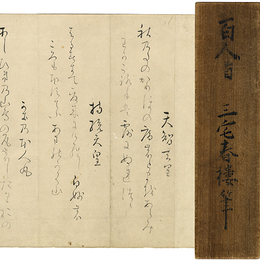 百人首 三宅春樓筆
天智天皇
秋乃田のかりほの庵の苫をあらみ
わか衣手は露にぬれつゝ
持統天皇
はるすきて夏きにけらし白妙の
ころもほすてふあまのかく山
人丸
あしひきの山とりの尾の